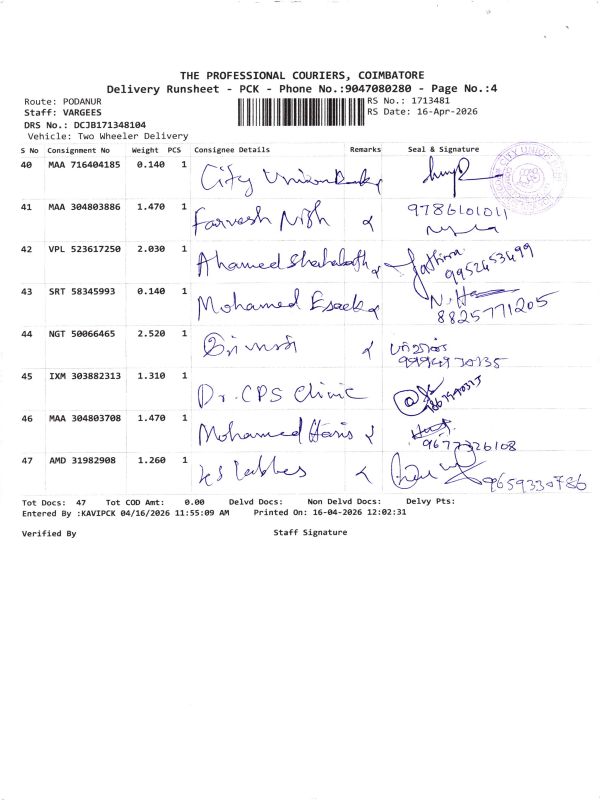 THE PROFESSIONAL COURIERS, COIMBATORE
Delivery Runsheet - PCK - Phone No.:9047080280 - Page No.:4
Route: PODANUR
RS No.: 1713481
Staff: VARGEES
RS Date: 16-Apr-2026
DRS No.: DCJB171348104
Vehicle: Two Wheeler Delivery
S No Consignment No Weight PCS Consignee Details Remarks Seal & Signature
40 MAA 716404185 0.140 1 City Union Bank
CITY UNION
41 MAA 304803886 1.470 1 9786101011
42 VPL 523617250 2.030 1 Ahamed Fathima 9952453499
43 SRT 58345993 0.140 1 Mohamed Esack 8825771205
44 NGT 50066465 2.520 1 9994970135
45 IXM 303882313 1.310 1 Dr. CPS Clinic
46 MAA 304803708 1.470 1 Mohamed Haris 9677326108
47 AMD 31982908 1.260 1 9659330786
Tot Docs: 47 Tot COD Amt: 0.00 Delvd Docs: Non Delvd Docs: Delvy Pts:
Entered By :KAVIPCK 04/16/2026 11:55:09 AM Printed On: 16-04-2026 12:02:31
Verified By Staff Signature